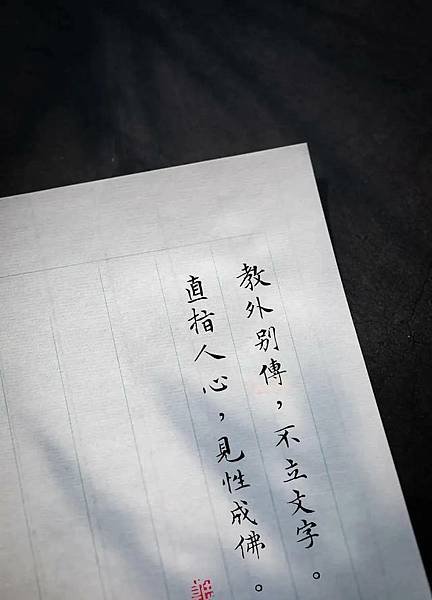 教外別傳，不立文字。
直指人心，見性成佛。